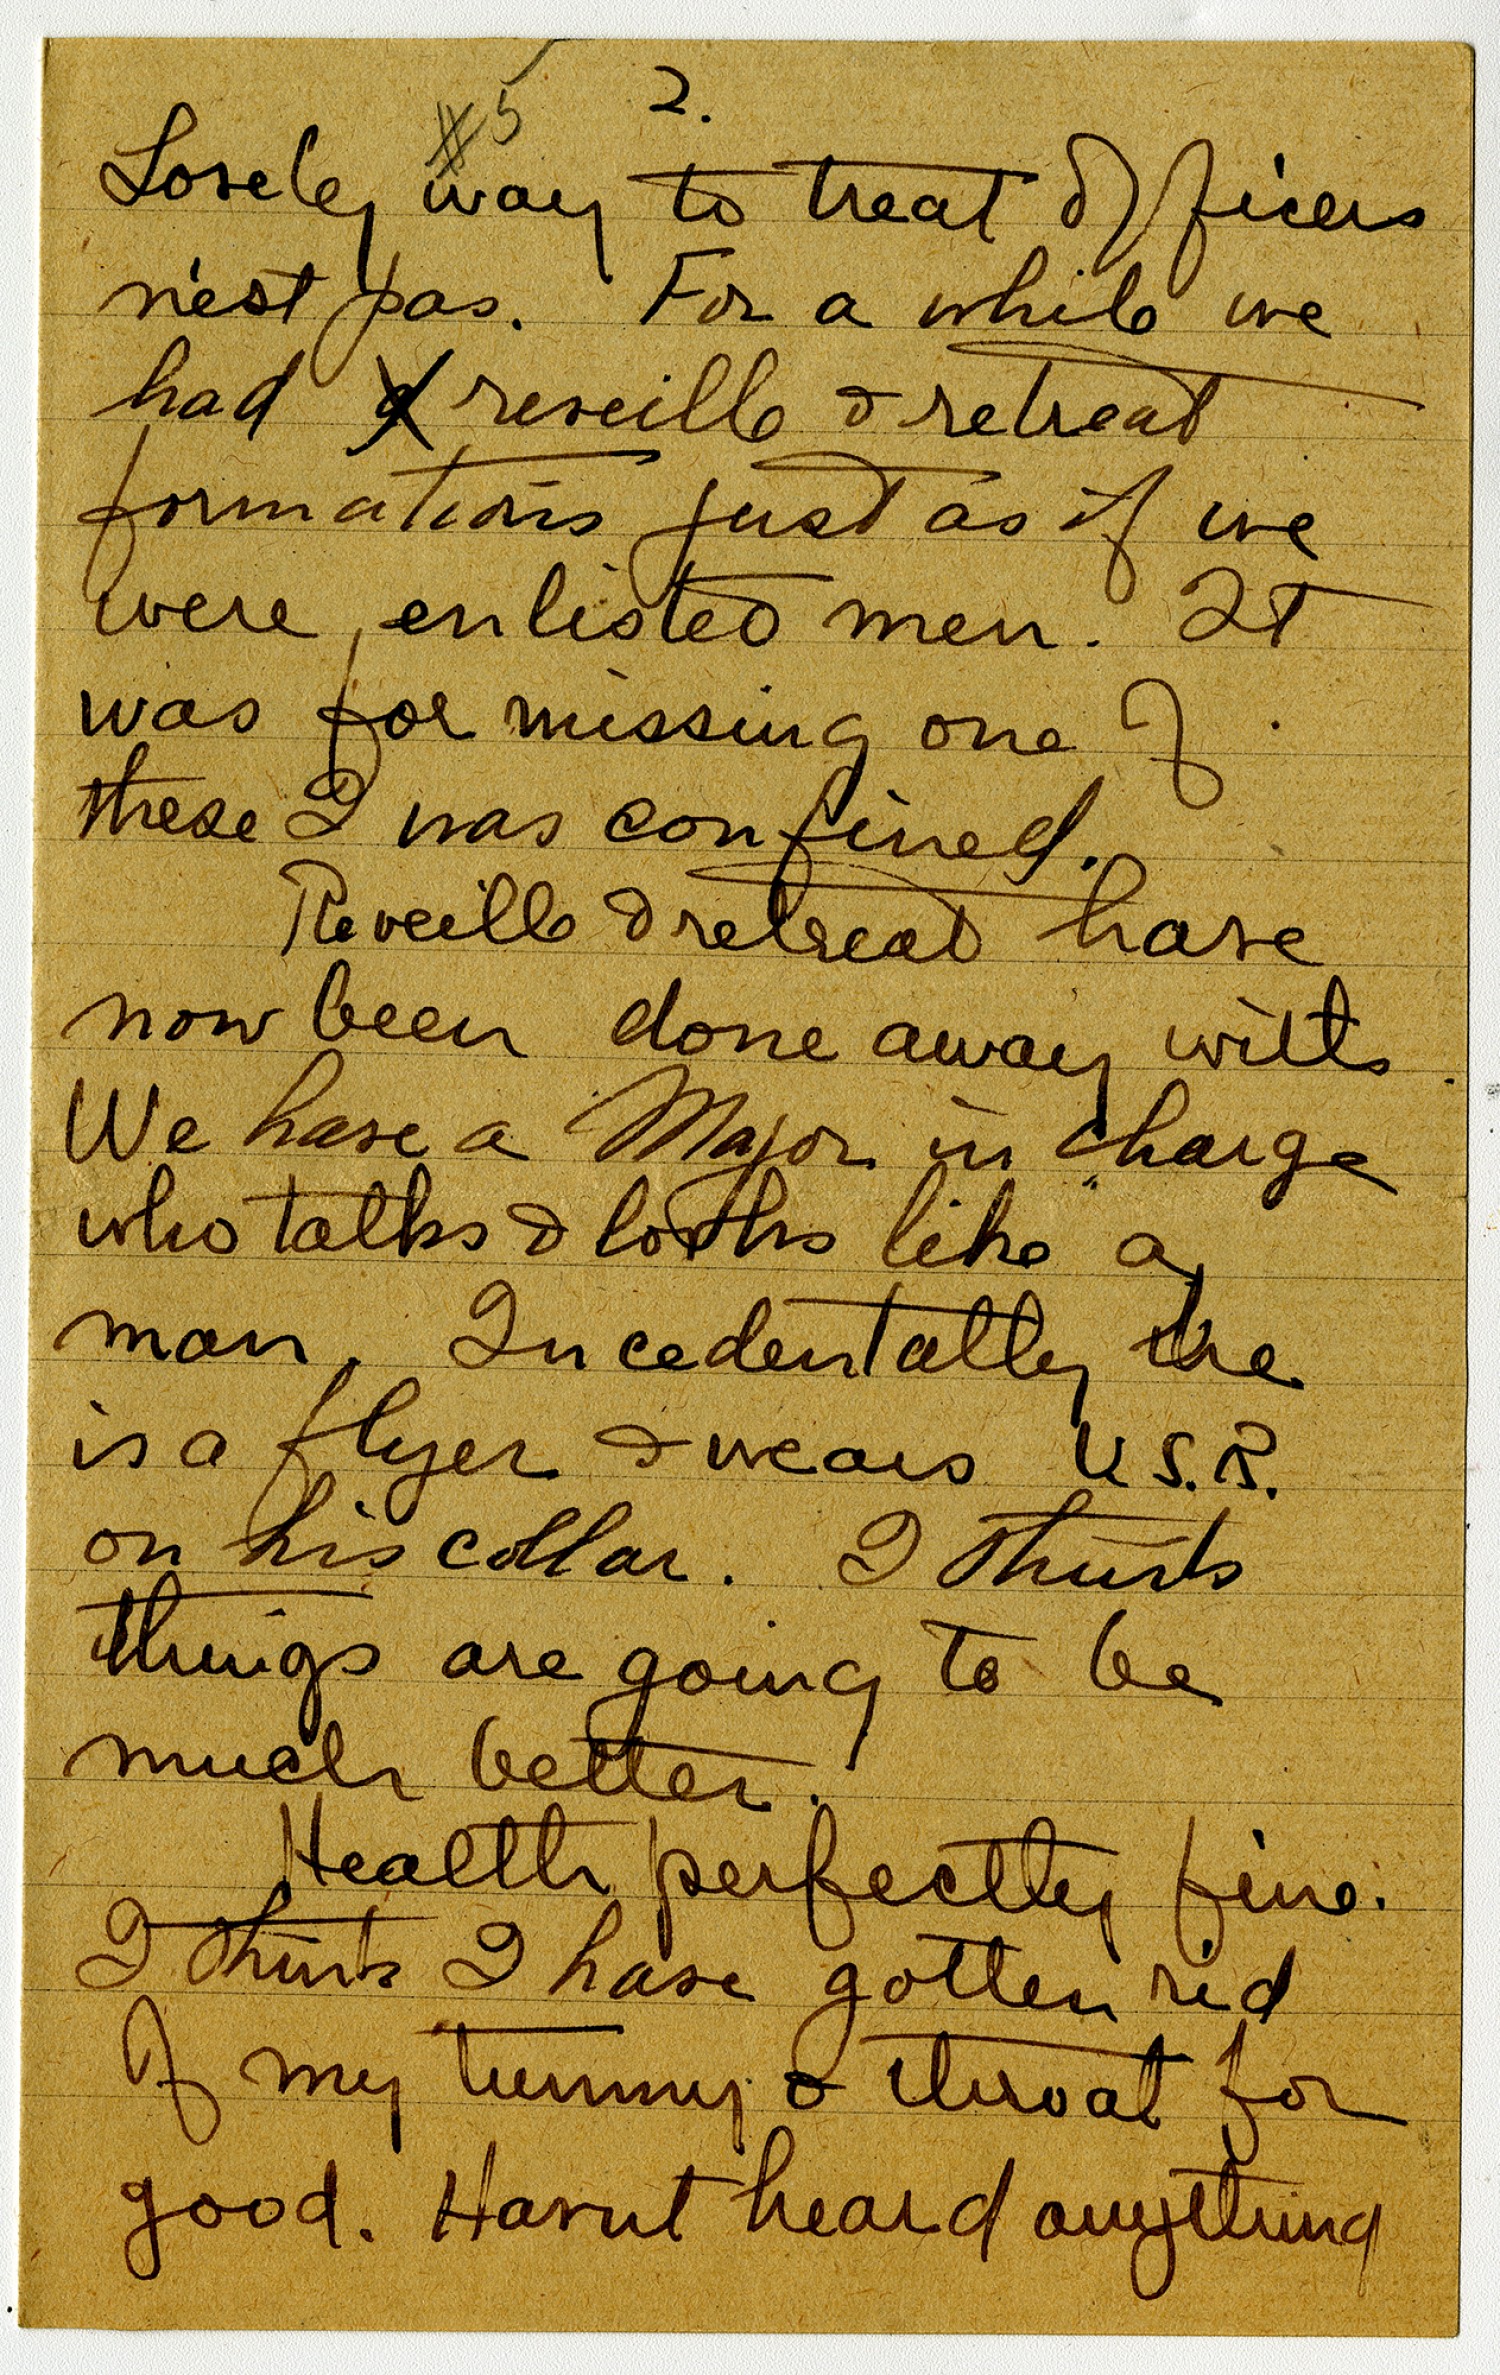 #5 2.
Lovely way to treat officers
n'est pas. For a while we
had reveille & retreat
formations just as if we
were enlisted men. It
was for missing one of
these I was confined.
Reveille & retreat have
now been done away with.
We have a Major in charge
who talks & looks like a
man. Incedentally he
is a flyer & wears U.S.R.
on his collar. I think
things are going to be
much better.
Health perfectly fine.
I think I have gotten rid
of my tummy & throat for
good. Havn't heard anything